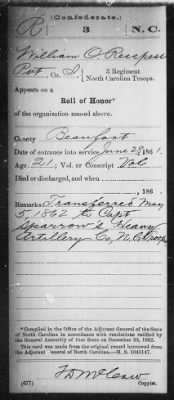 (Confederate.)
R 3 N.C.
William O. Respess
Pvt, Co. I, 3 Regiment
North Carolina Troops.
Appears on a
Roll of Honor*
of the organization named above.
County Beaufort
Date of entrance into service, June 28, 1861.
Age, 21; Vol. or Conscript Vol.
Died or discharged, and when
, 186 .
Remarks: Transferred May
5, 1862 to Capt
Sparrow's Heavy
Artillery Co, N.C. Troops
*Compiled in the Office of the Adjutant General of the State
of North Carolina in accordance with resolutions ratified by
the General Assembly of that State on December 20, 1862.
This copy was made from the original record borrowed from
the Adjutant General of North Carolina.—R. & P.
(677) Copyist.